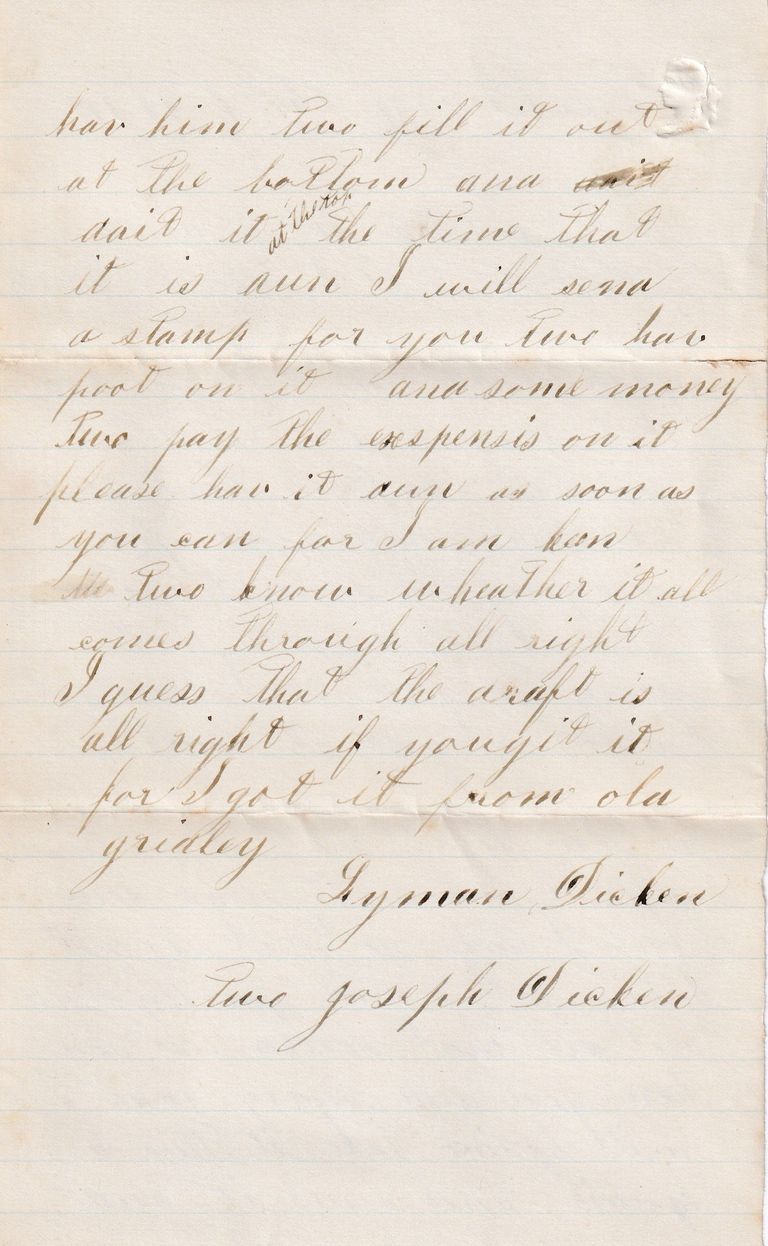 hav him two fill it out
at the bottom and
dait it at the top the time that
it is dun I will send
a stamp for you two hav
poot on it and some money
two pay the exspensis on it
please hav it dun as soon as
you can for I am keen
two know wheather it all
comes through all right
I guess that the draft is
all right if you git it
for I got it from old
gridley
Lyman Dicken
two Joseph Dicken